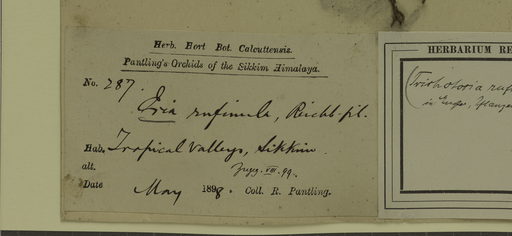 Herb. Hort Bot. Calcuttensis.
Pantling's Orchids of the Sikkim Himalaya.
No. 287.
Eria rufinula, Reichb. fil.
Hab. Tropical Valleys, Sikkim.
alt.
VIII. 99.
Date May 1898. Coll. R. Pantling.
HERBARIUM RE
(Trichotosia ruf
in Engler, Pflanzen